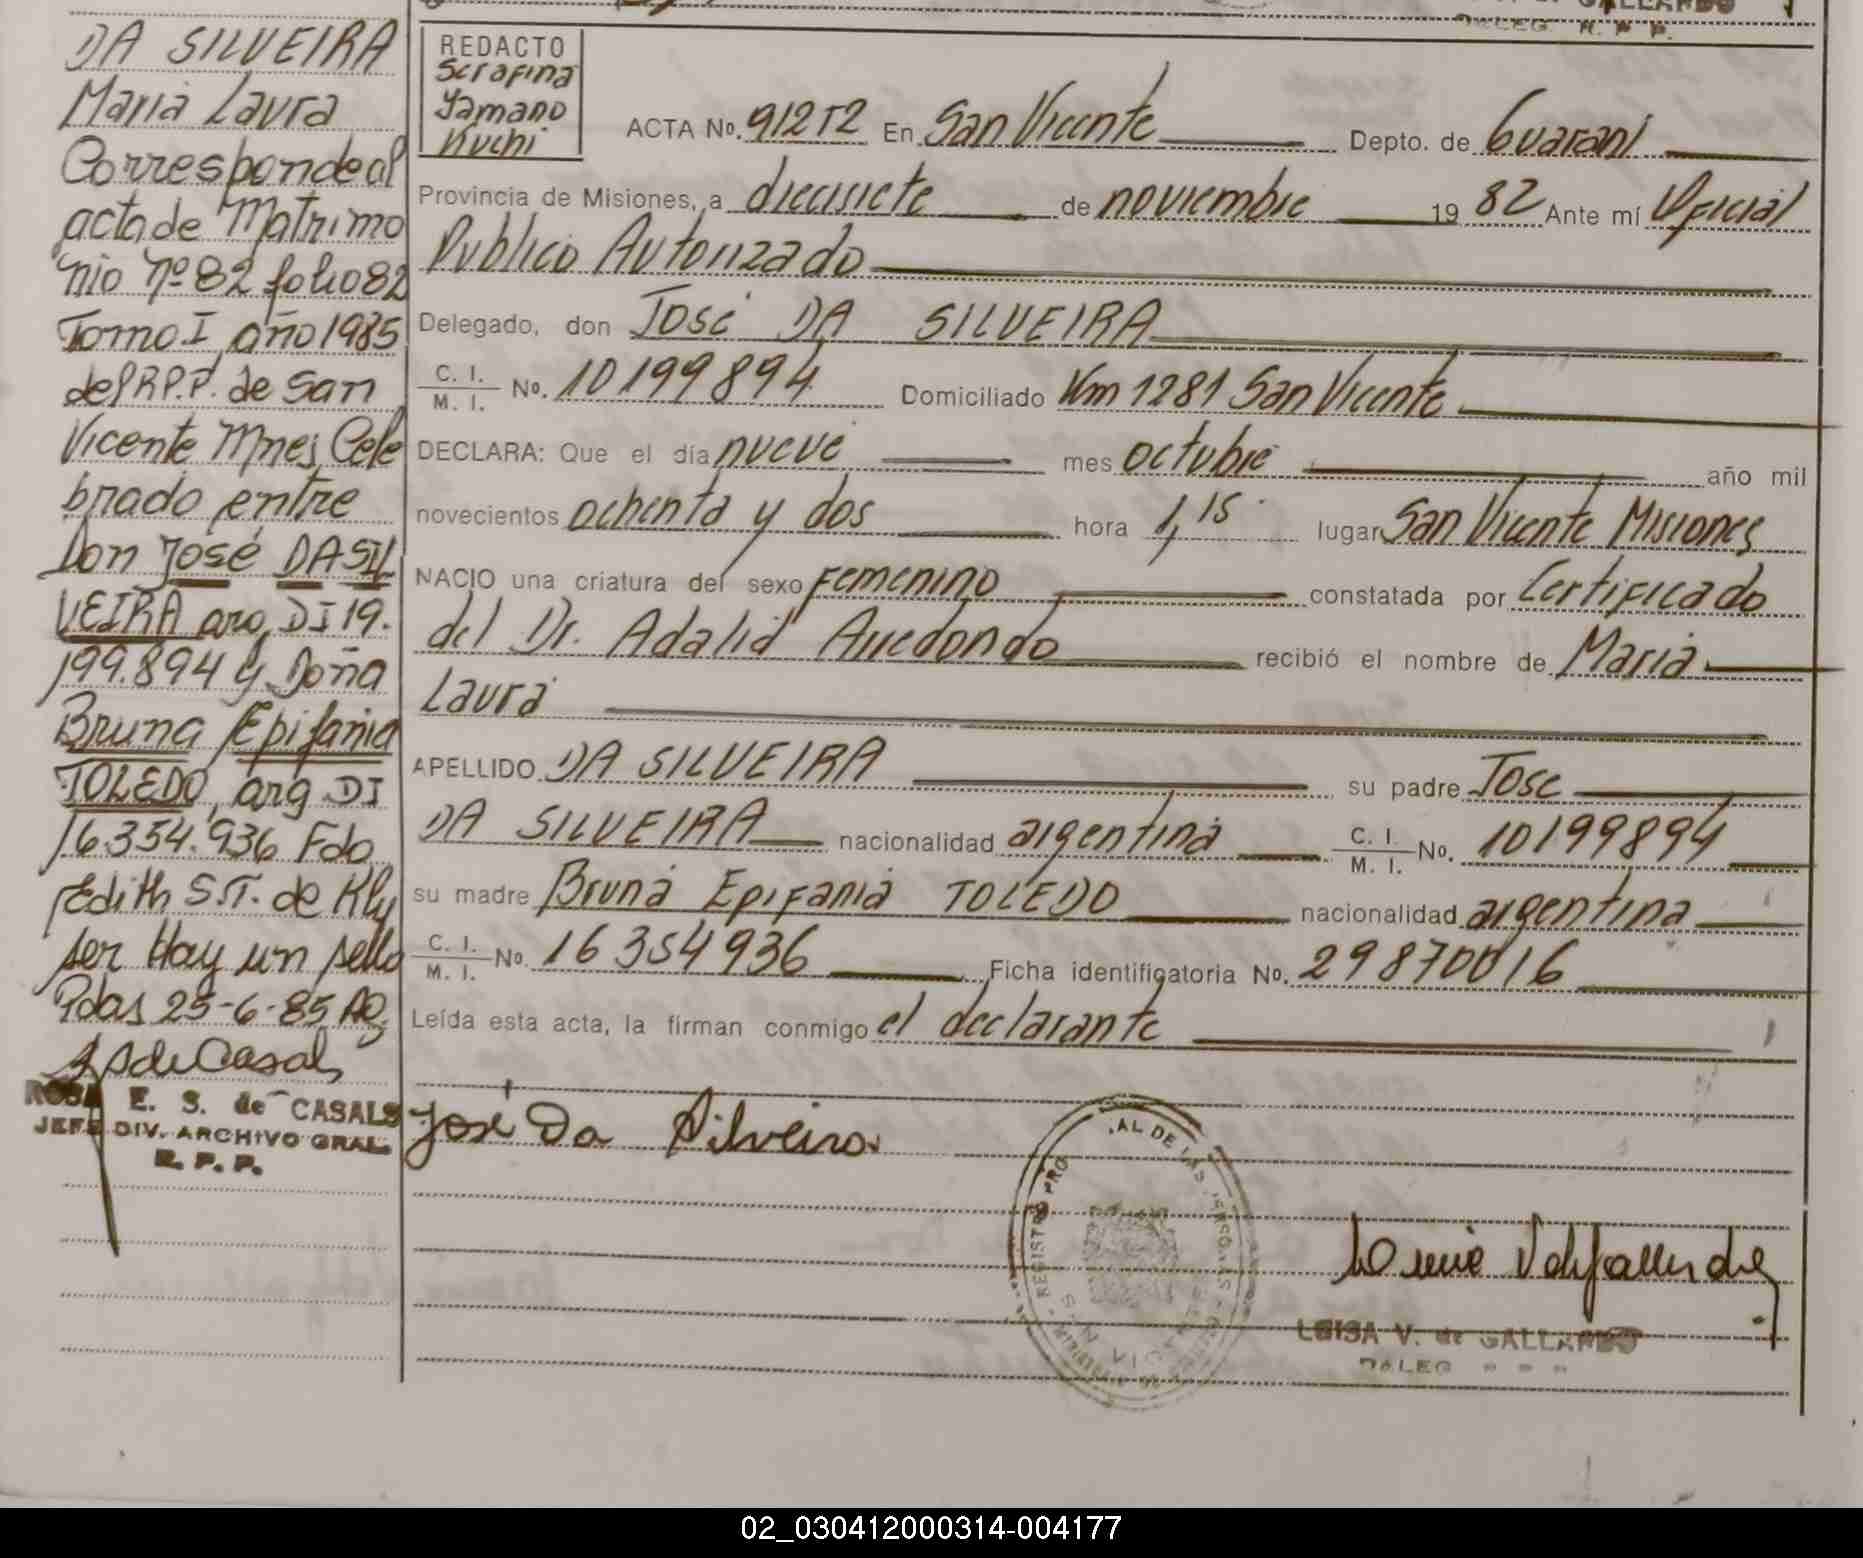 GALLARDO
DELEG. R. P. P.
DA SILVEIRA
Maria Laura
Corresponde al
acta de Matrimo
nio Nº 82 folio 82
Tomo I año 1985
del R.P.P. de San
Vicente Mnes Cele
brado entre
Don José DA SIL
VEIRA arg DI 19.
199.894 y Doña
Bruna Epifania
TOLEDO, arg DI
16.354.936 Fdo
Edith S.T. de Kly
ser Hay un sello
Pdas 25-6-85
de Casals
ROSA E. S. de CASALS
JEFE DIV. ARCHIVO GRAL.
R. P. P.
REDACTO
Serafina
Yamano
Kuchi
ACTA No. 912 T2 En San Vicente Depto. de Guarani
Provincia de Misiones, a diecisiete de noviembre 19 82 Ante mí Oficial
Publico Autorizado
Delegado, don José DA SILVEIRA
C. I. / M. I. No. 10199894 Domiciliado Km 1281 San Vicente
DECLARA: Que el día nueve mes octubre año mil
novecientos ochenta y dos hora 1,15 lugar San Vicente Misiones
NACIO una criatura del sexo Femenino constatada por Certificado
del Dr. Adalid Arredondo recibió el nombre de Maria
Laura
APELLIDO DA SILVEIRA su padre José
DA SILVEIRA nacionalidad argentina C. I. / M. I. No. 10199894
su madre Bruna Epifania TOLEDO nacionalidad argentina
C. I. / M. I. No. 16354936 Ficha identificatoria No. 29870016
Leída esta acta, la firman conmigo el declarante
José Da Silveira
LUISA V. de GALLARDO
DELEG
02_030412000314-004177